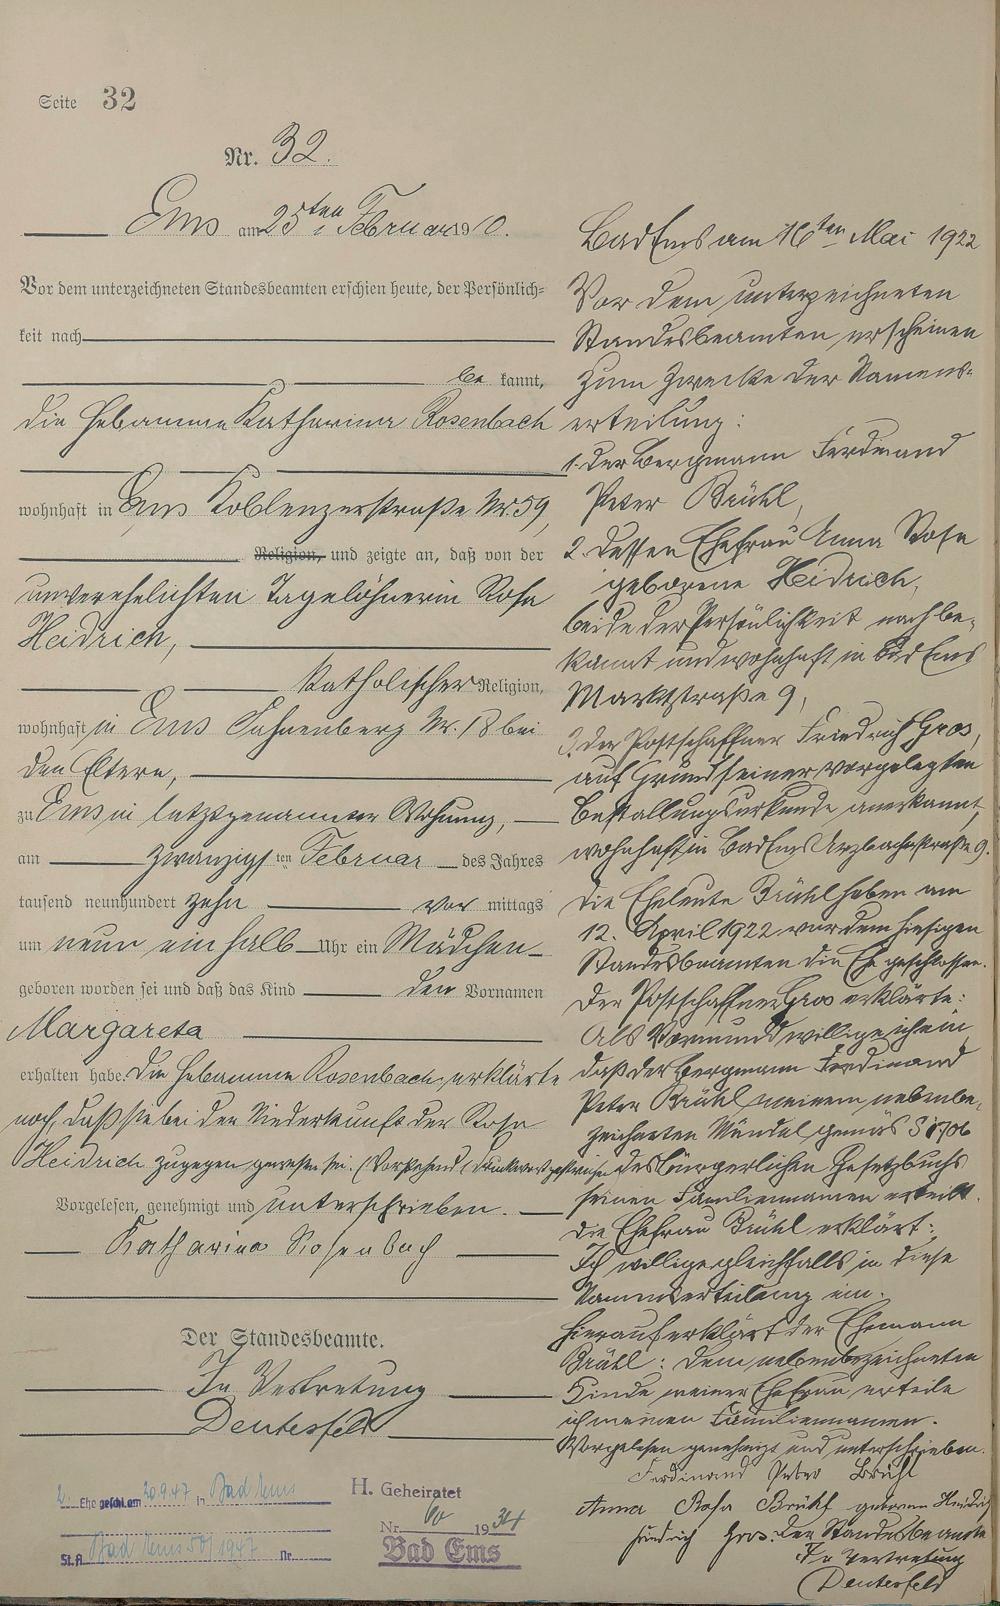 Seite 32
Nr. 32.
Ems am 25ten Februar 1910.
Vor dem unterzeichneten Standesbeamten erschien heute, der Persönlich=
keit nach
be kannt,
die Hebamme Katharina Rosenbach
wohnhaft in Ems Koblenzerstraße Nr. 59,
Religion, und zeigte an, daß von der
unverehelichten Tagelöhnerin Rosa
Heidrich,
katholischer Religion,
wohnhaft in Ems Nr. 18 bei
den Eltern,
zu Ems in letztgenannter Wohnung,
am zwanzigsten Februar des Jahres
tausend neunhundert zehn vor mittags
um neun einhalb Uhr ein Mädchen
geboren worden sei und daß das Kind den Vornamen
Margareta
erhalten habe. Die Hebamme Rosenbach erklärte
noch, daß sie bei der Niederkunft der Rosa
Heidrich zugegen gewesen sei. (Vorstehend
Vorgelesen, genehmigt und unterschrieben.
Katharina Rosenbach
Der Standesbeamte.
In Vertretung
Deutesfeld
2. Ehe geschl. am 20.9.47 in Bad Ems
St. A. Bad Ems 50/1947 Nr.
H. Geheiratet
Nr. 1934
Bad Ems
Bad Ems am 16ten Mai 1922
Vor dem unterzeichneten
Standesbeamten erscheinen
zum Zwecke der Namens=
erteilung:
1. der Bergmann Ferdinand
Peter Brühl,
2. dessen Ehefrau Anna Rosa
geborene Heidrich,
beide der Persönlichkeit nach be=
kannt und wohnhaft in Bad Ems
Marktstraße 9,
3. der Postschaffner Friedrich Gros,
auf Grund seiner vorgelegten
Bestallungsurkunde anerkannt,
wohnhaft in Bad Ems Arzbacherstraße 9.
Die Eheleute Brühl haben am
12. April 1922 vor dem hiesigen
Standesbeamten die Ehe geschlossen.
Der Postschaffner Gros erklärte:
Als Vormund willige ich ein,
daß der Bergmann Ferdinand
Peter Brühl meinem nebenbe=
zeichneten Mündel gemäß § 1706
des bürgerlichen Gesetzbuchs
seinen Familiennamen erteilt.
Die Ehefrau Brühl erklärt:
Ich willige gleichfalls in diese
Namenserteilung ein.
Hierauf erklärt der Ehemann
Brühl: Dem nebenbezeichneten
Kinde meiner Ehefrau erteile
ich meinen Familiennamen.
Vorgelesen genehmigt und unterschrieben.
Ferdinand Peter Brühl
Anna Rosa Brühl geborene Heidrich
Friedrich Gros. Der Standesbeamte
In Vertretung
Deutesfeld